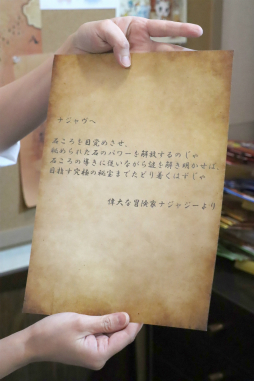 ナジャヴへ
石ころを目覚めさせ、
秘められた石のパワーを解放するのじゃ
石ころの導きに従いながら謎を解き明かせば
目指す究極の秘宝までたどり着くはずじゃ
偉大な冒険家ナジャジーより